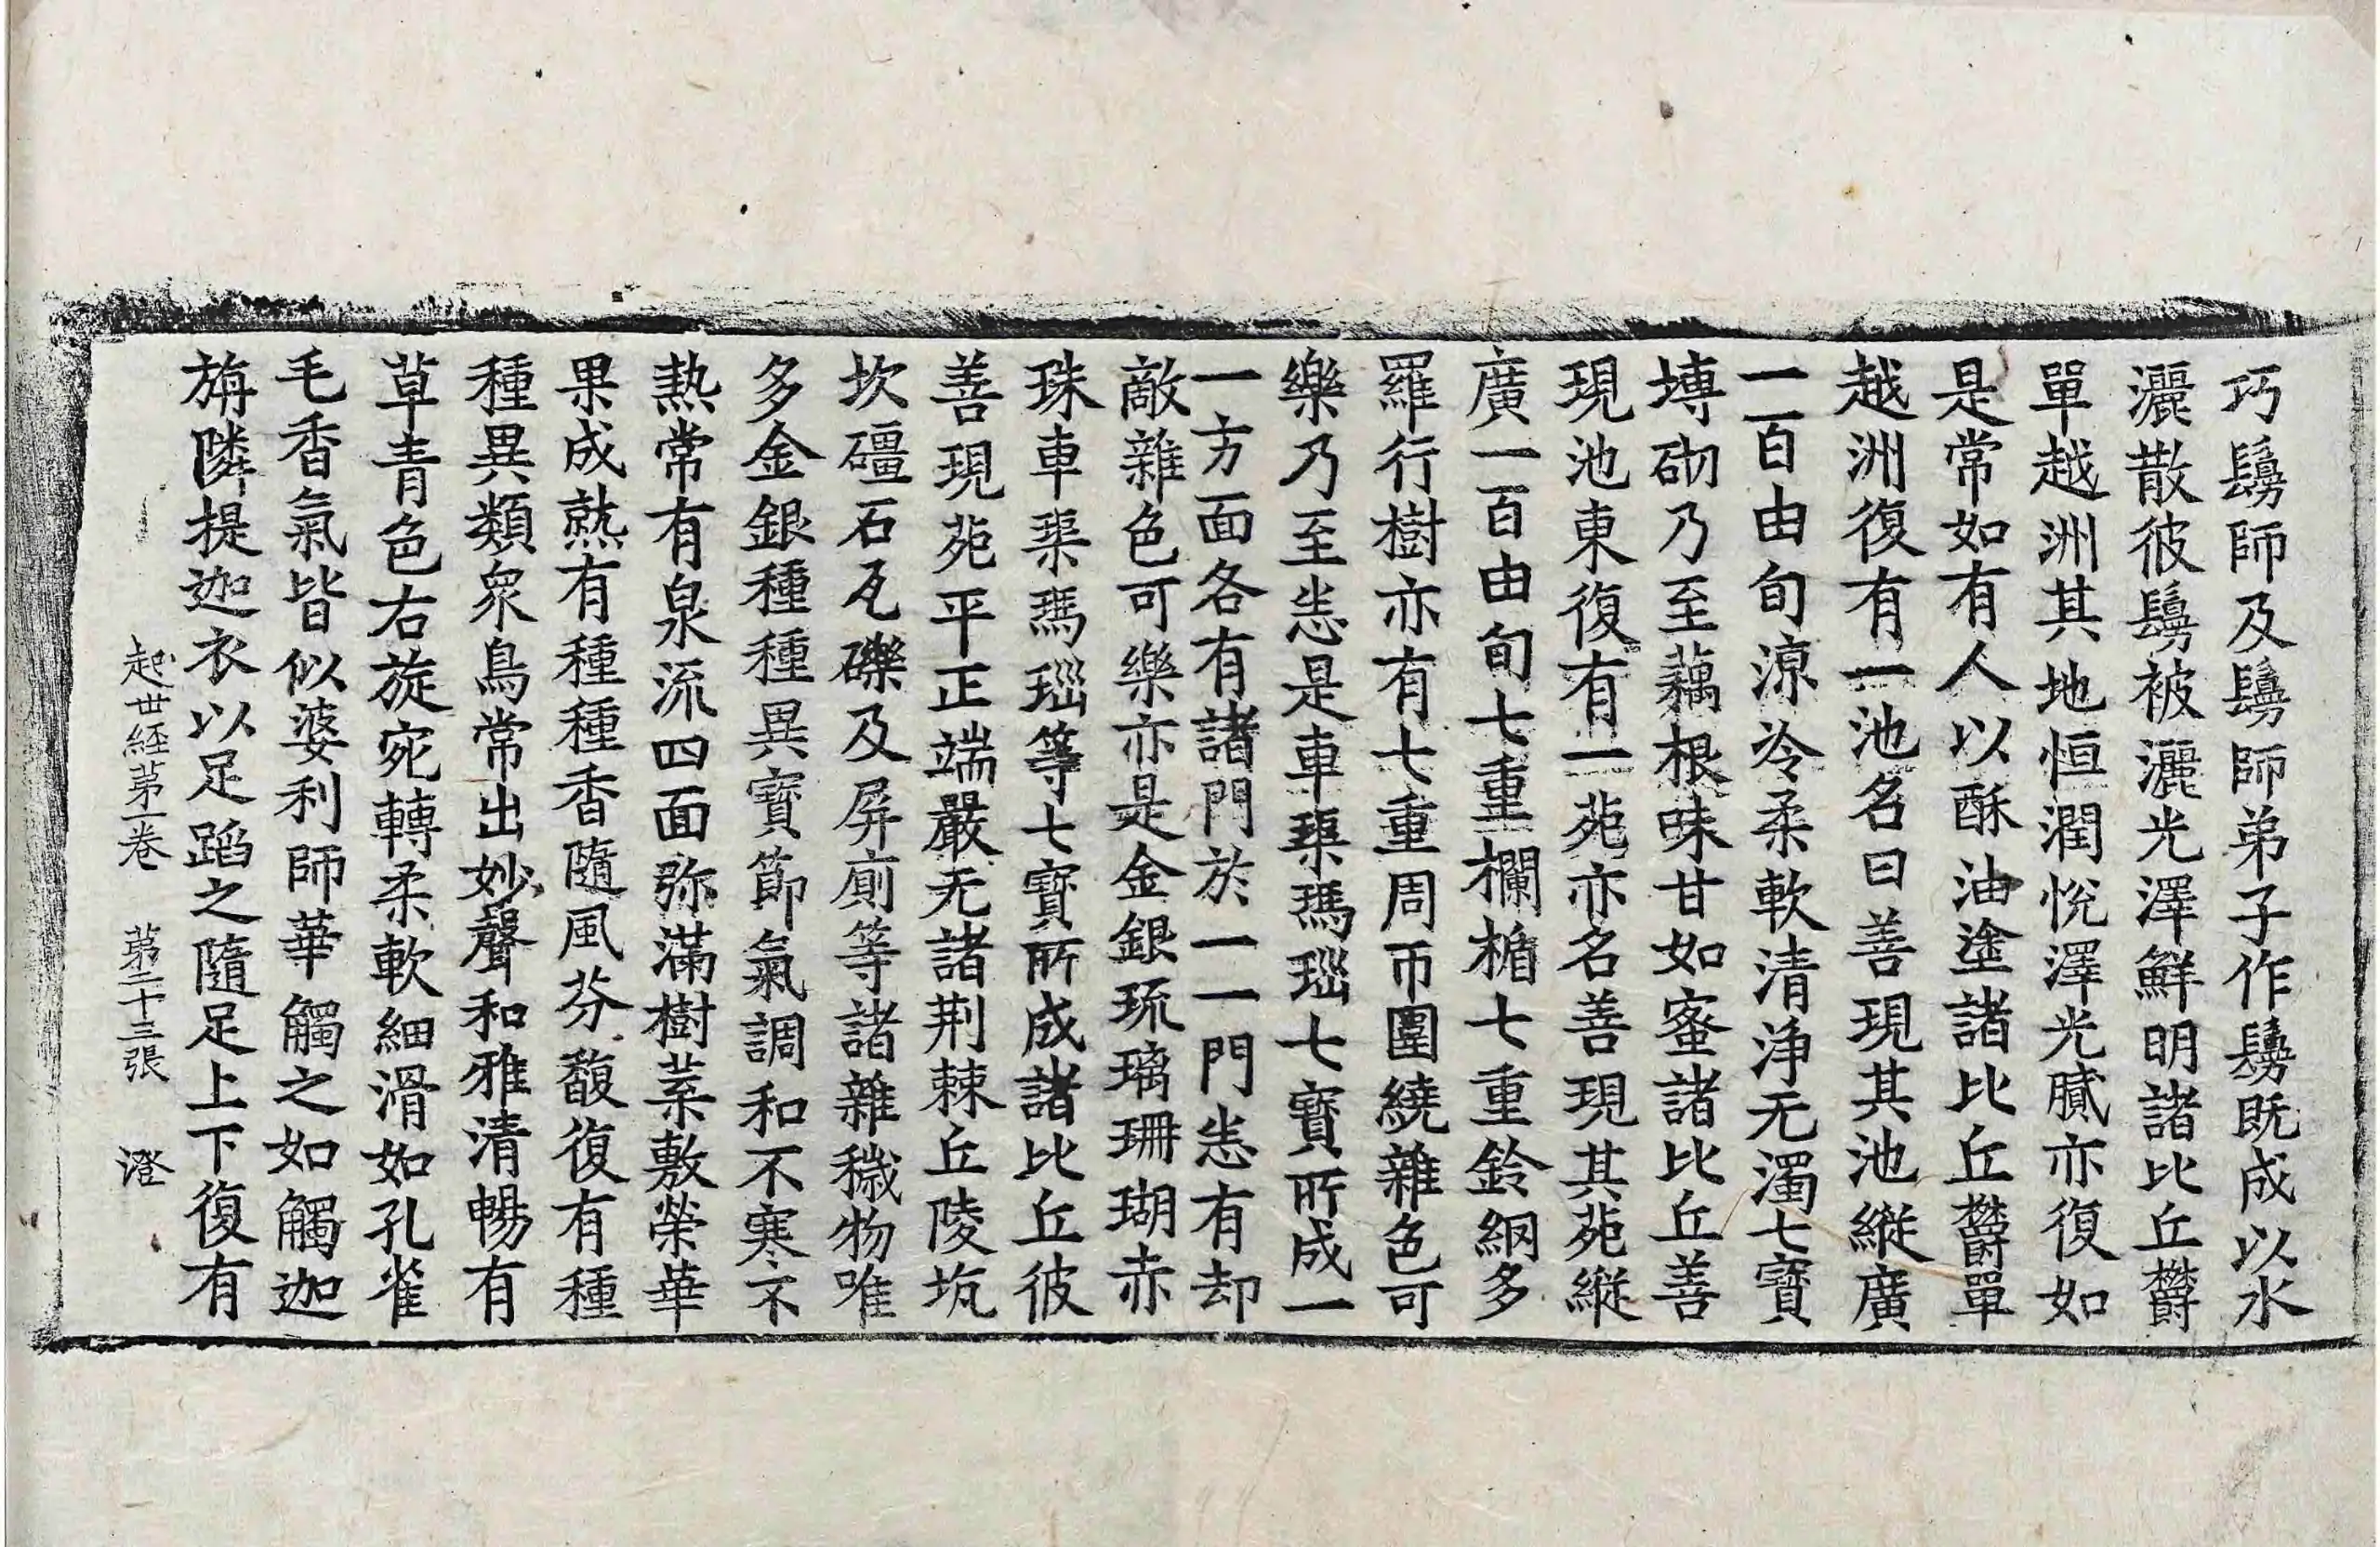 巧鬘師及鬘師弟子作鬘既成以水
灑散彼鬘被灑光澤鮮明諸比丘欝
單越洲其地恒潤悅澤光膩亦復如
是常如有人以酥油塗諸比丘欝單
越洲復有一池名曰善現其池縱廣
一百由旬涼冷柔軟清淨无濁七寶
塼砌乃至藕根味甘如蜜諸比丘善
現池東復有一苑亦名善現其苑縱
廣一百由旬七重欄楯七重鈴網多
羅行樹亦有七重周帀圍繞雜色可
樂乃至悉是車渠瑪瑙七寶所成一
一方面各有諸門於一一門悉有却
敵雜色可樂亦是金銀琉璃珊瑚赤
珠車渠瑪瑙等七寶所成諸比丘彼
善現苑平正端嚴无諸荆棘丘陵坑
坎礓石瓦礫及屏廁等諸雜穢物唯
多金銀種種異寶節氣調和不寒不
熱常有泉流四面弥滿樹葉敷榮華
果成熟有種種香隨風芬馥復有種
種異類衆鳥常出妙聲和雅清暢有
草青色右旋宛轉柔軟細滑如孔雀
毛香氣皆似婆利師華觸之如觸迦
旃隣提迦衣以足蹈之隨足上下復有
起世經第一卷 第二十三張 澄